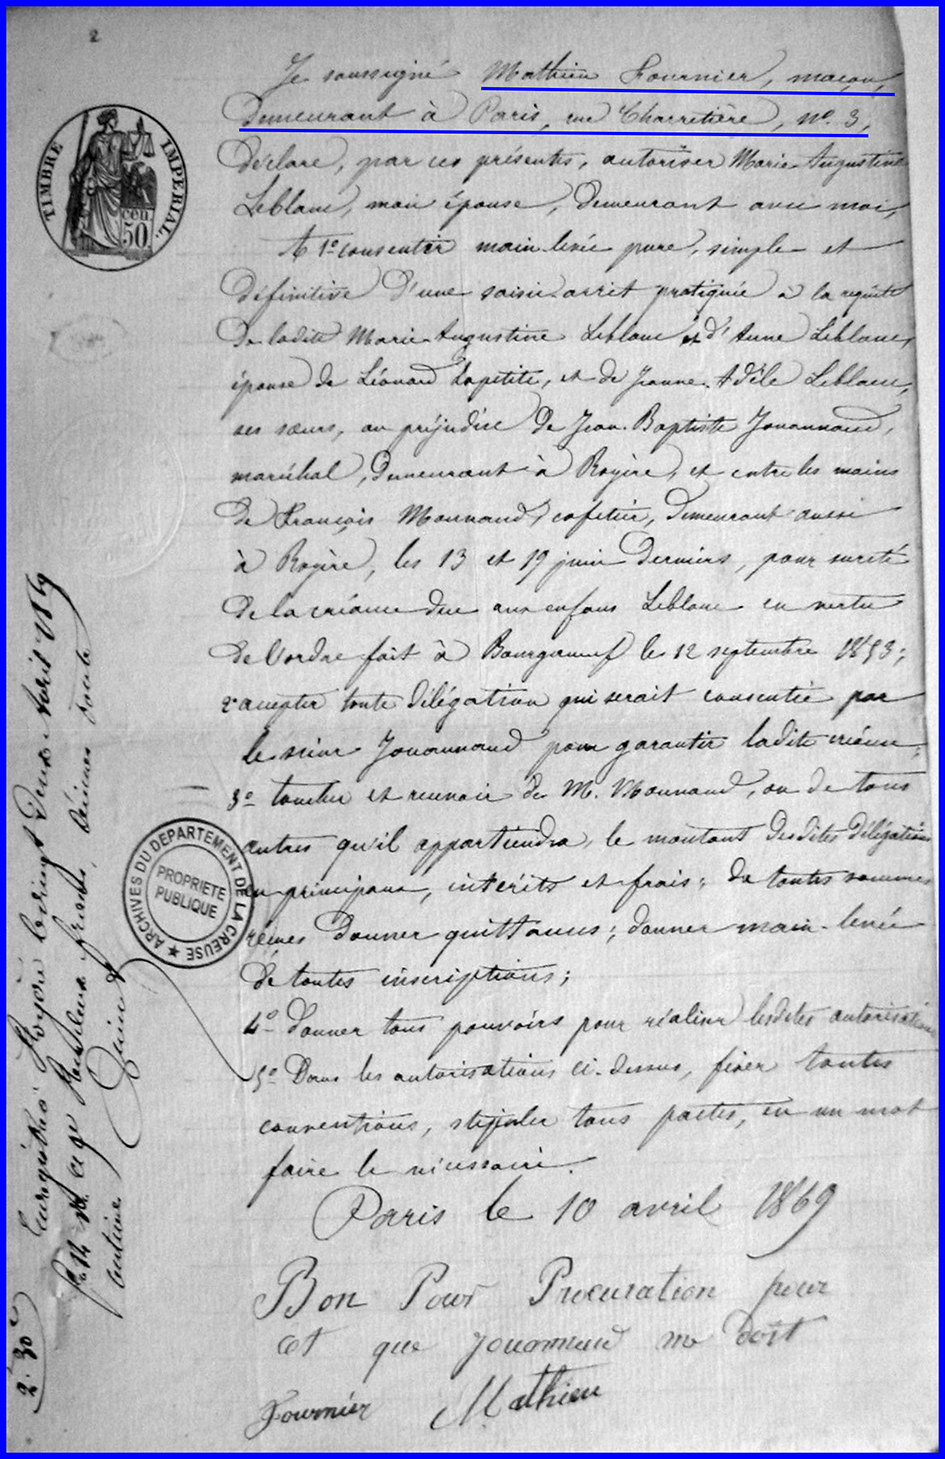 2
TIMBRE IMPERIAL.
50 cen
Je soussigné Mathieu Fournier, maçon,
demeurant à Paris, rue Charretière, nº 3,
déclare, par ces présentes, autoriser Marie-Augustine
Leblanc, mon épouse, demeurant avec moi,
A 1º consentir main levée pure, simple et
définitive d'une saisie-arrêt pratiquée à la requête
de ladite Marie-Augustine Leblanc et d'Anne Leblanc,
épouse de Léonard Lapetite, et de Jeanne-Adèle Leblanc,
ses sœurs, au préjudice de Jean-Baptiste Jouannaud,
maréchal, demeurant à Royère, et entre les mains
de François Monnaud, cafetier, demeurant aussi
à Royère, les 13 et 19 juin derniers, pour sureté
de la créance due aux enfans Leblanc en vertu
de l'ordre fait à Bourganeuf le 12 septembre 1853;
2º accepter toute délégation qui serait consentie par
le sieur Jouannaud pour garantir ladite créance;
3º toucher et recevoir de M. Monnaud, ou de tous
autres qu'il appartiendra, le montant desdites délégations
en principaux, intérêts et frais; de toutes sommes
reçues donner quittances; donner main-levée
de toutes inscriptions;
4º donner tous pouvoirs pour réaliser lesdites autorisations
5º Dans les autorisations ci-dessus, fixer toutes
conventions, stipuler tous pactes, en un mot
faire le nécessaire.
Paris le 10 avril 1869
Bon Pour Procuration pour
et que jouannaud me doit
Fournier Mathieu
ARCHIVES DU DÉPARTEMENT DE LA CREUSE
PROPRIETE PUBLIQUE
Enregistré à Royère le vingt deux Avril 1869
fº 14 Rº Cº 7e Reçu deux francs, décimes trente
centimes
2.30